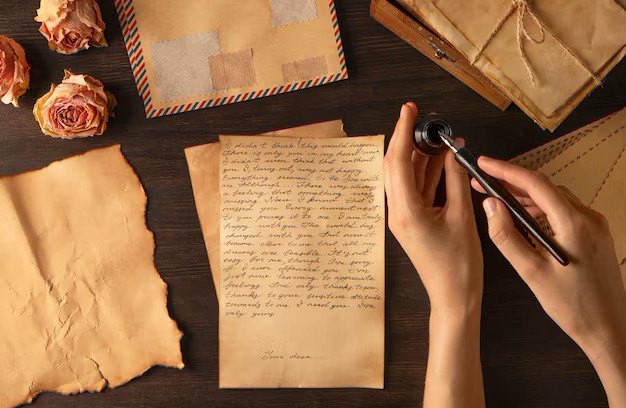 I didn't think this would happen.
There is only you in my heart now
I didn't even think that without
you, I turns out, was not happy.
Everything seemed to be fine with
me. Although... There was always
a feeling that something was
missing. Now I know that I
missed you. Every moment next
to you proves it to me. I am truly
happy with you. The world has
changed with you. And now it
became clear to me that all my
dreams are feasible. It's not
easy for me, though. I'm sorry
if I ever offended you. I'm
just now learning to appreciate
feelings. And only thanks to you,
thanks to your sensitive attitude
towards to me. I need you. I'm
only yours.
Your dear...